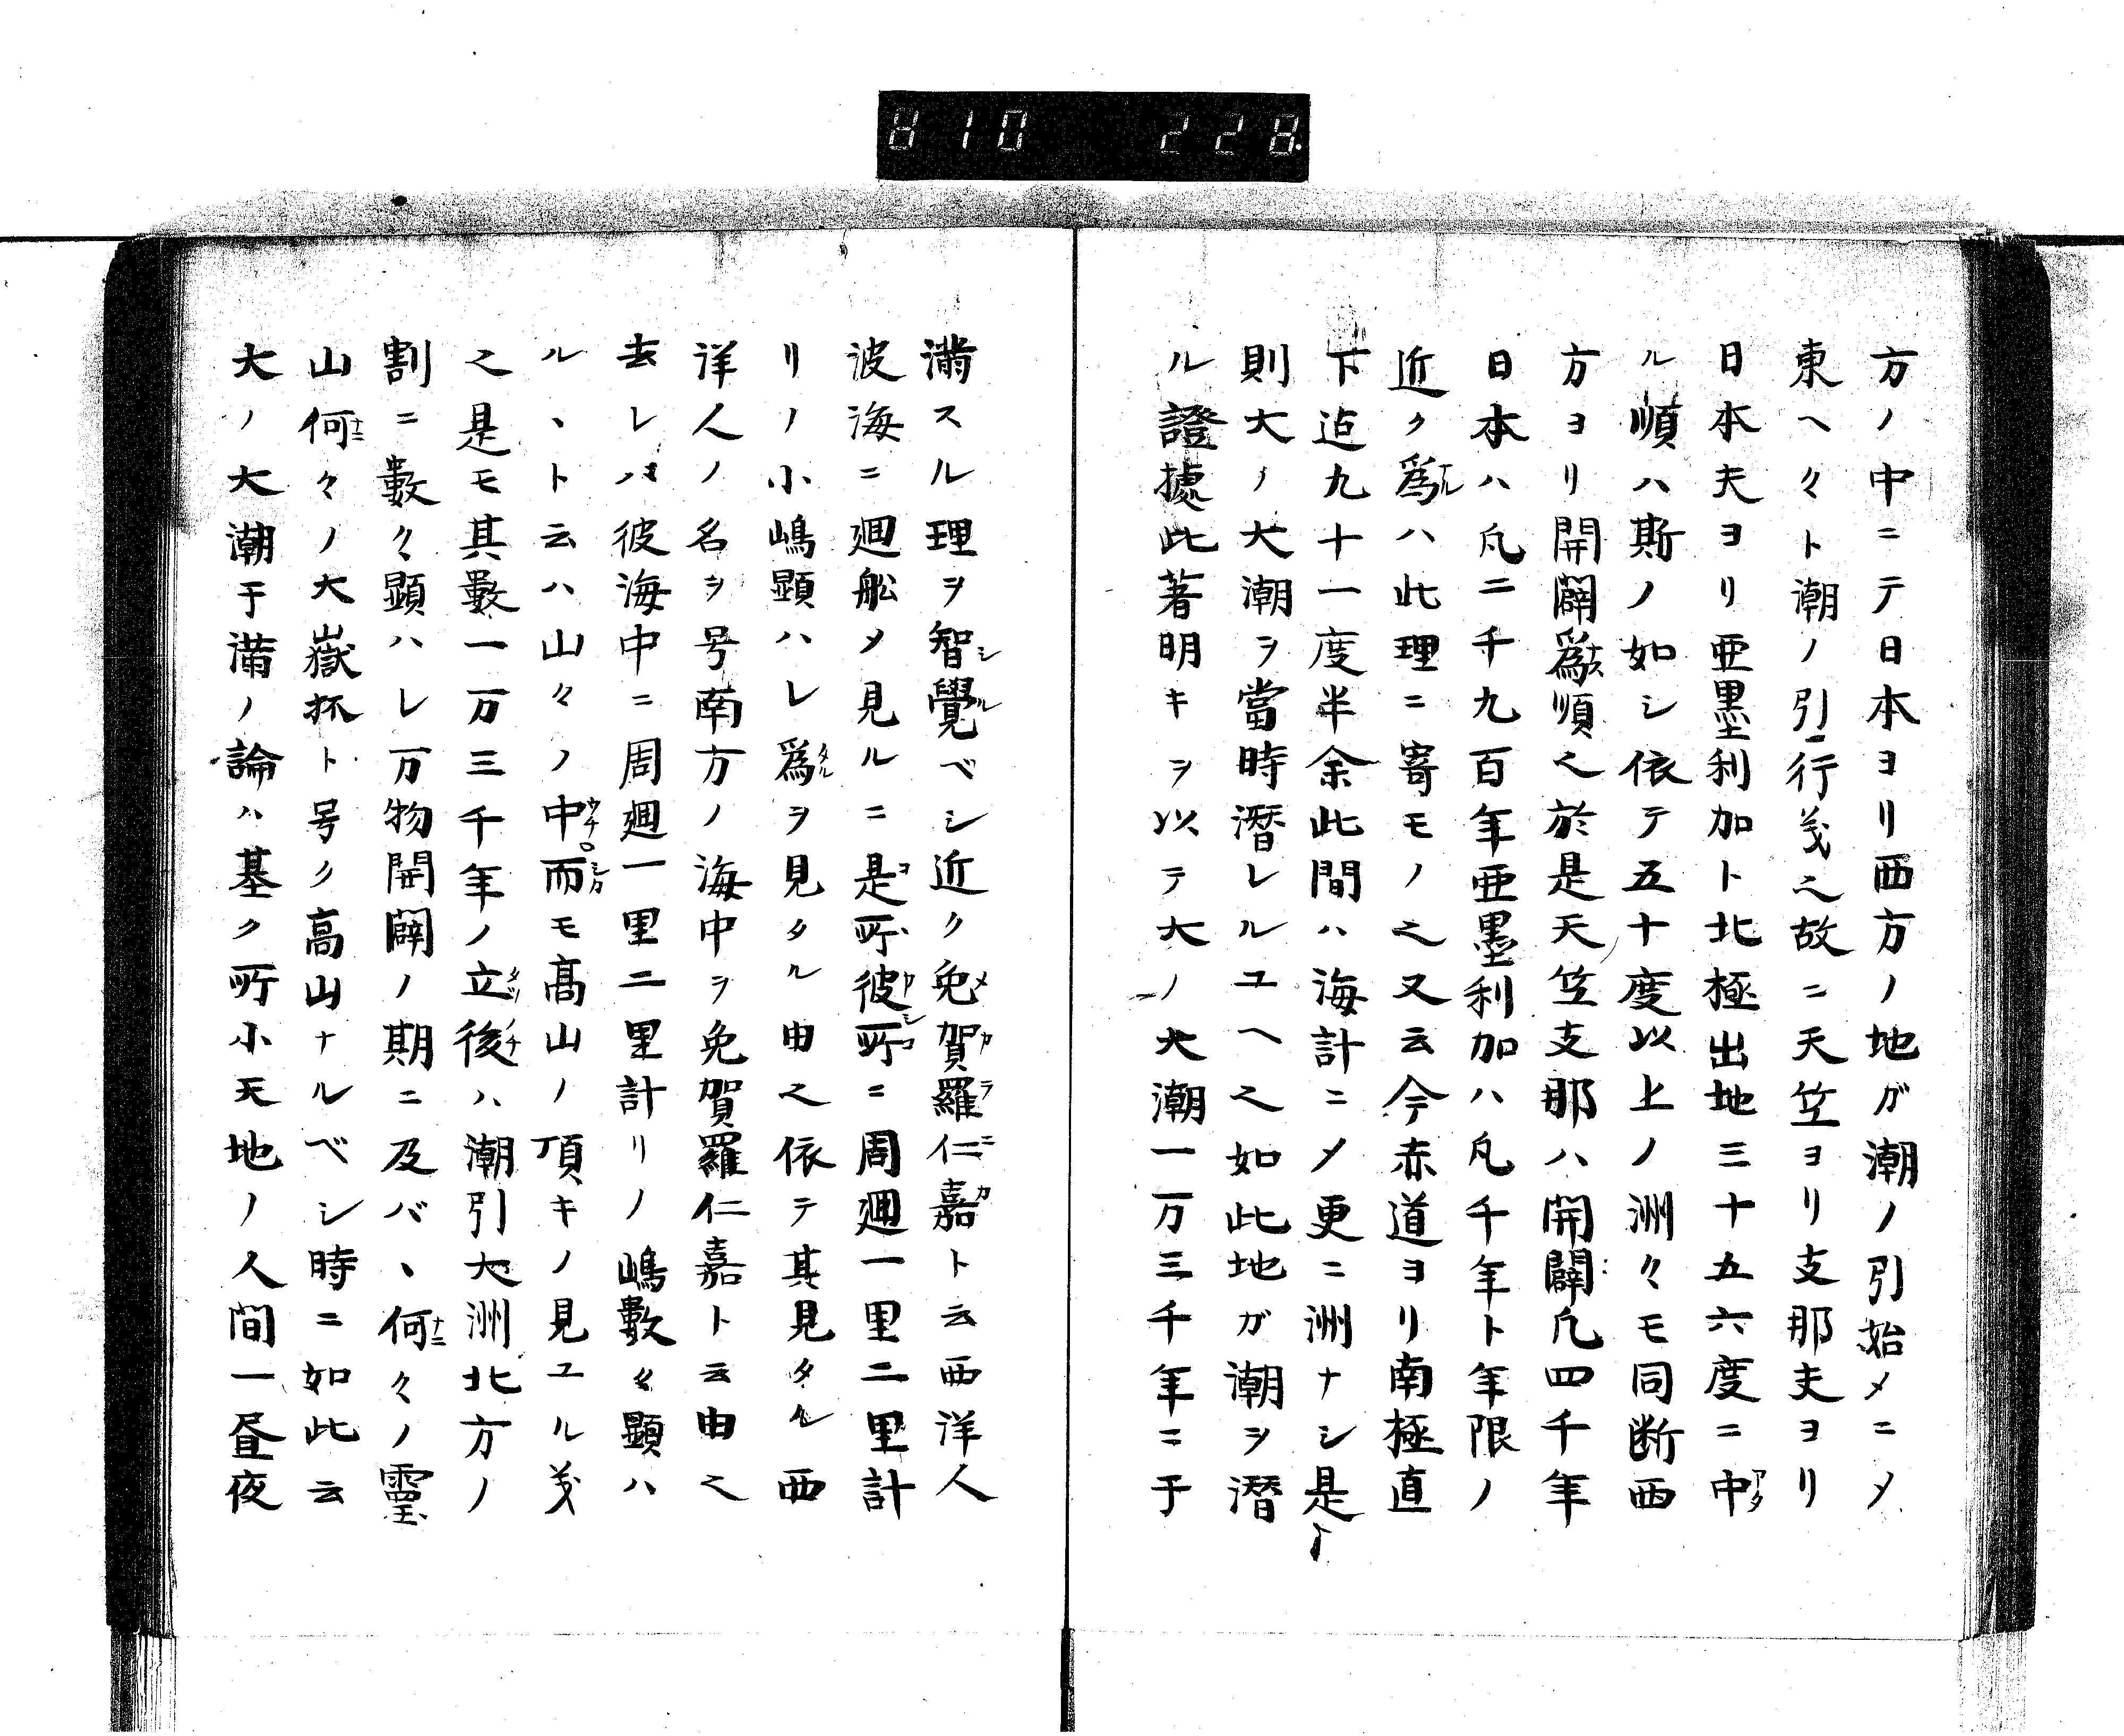 810 228.
方ノ中ニテ日本ヨリ西方ノ地ガ潮ノ引始メニメ
東ヘ々ト潮ノ引行㐧之故ニ天笠ヨリ支那夫ヨリ
日本夫ヨリ亜墨利加ト北極出地三十五六度ニ中
ル順ハ斯ノ如シ依テ五十度以上ノ洲々モ同断西
方ヨリ開闢爲順之於是天笠支那ハ開闢凡四千年
日本ハ凡二千九百年亜墨利加ハ凡千年ト年限ノ
近ク爲ハ此理ニ寄モノ之又云今赤道ヨリ南極直
下迠九十一度半余此間ハ海計ニメ更ニ洲ナシ是
則大ノ大潮ヲ當時潛レルユヘ之如此地ガ潮ヲ潛
ル證據此著明キヲ以テ大ノ大潮一万三千年ニ干
満スル理ヲ智覺ベシ近ク免賀羅仁嘉ト云西洋人
波海ニ廻舩メ見ルニ是所彼所ニ周廻一里二里計
リノ小嶋顕ハレ爲ヲ見タル由之依テ其見タル西
洋人ノ名ヲ号南方ノ海中ヲ免賀羅仁嘉ト云由之
去レバ彼海中ニ周廻一里二里計リノ嶋數々顕ハ
ルヽト云ハ山々ノ中而モ髙山ノ頂キノ見ユル㐧
之是モ其數一万三千年ノ立後ハ潮引大洲北方ノ
割ニ數々顕ハレ万物開闢ノ期ニ及バヽ何々ノ靈
山何々ノ大嶽抔ト号ク高山ナルベシ時ニ如此云
大ノ大潮干満ノ論ハ基ク所小天地ノ人間一昼夜